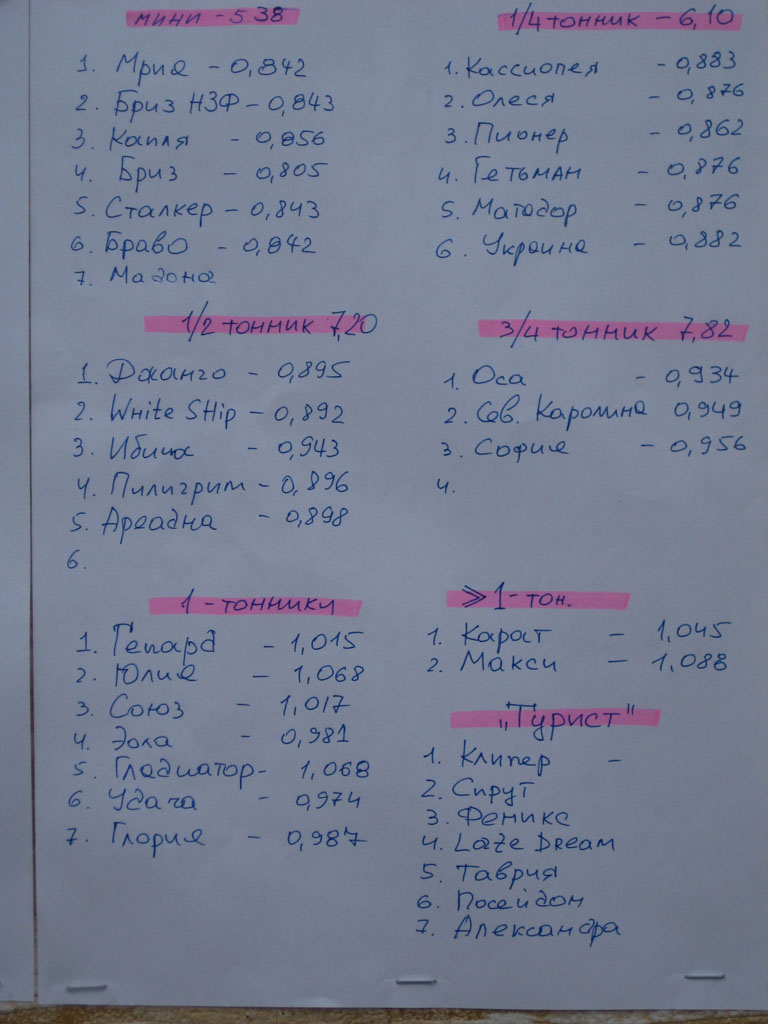 мини - 538
1. Мрия - 0,842
2. Бриз НЗФ - 0,843
3. Капля - 0,856
4. Бриз - 0,805
5. Сталкер - 0,843
6. Браво - 0,842
7. Мадона
1/4 тонник - 6,10
1. Кассиопея - 0,883
2. Олеся - 0,876
3. Пионер - 0,862
4. Гетьман - 0,876
5. Матадор - 0,876
6. Украина - 0,882
1/2 тонник 7,20
1. Джанго - 0,895
2. White SHip - 0,892
3. Ибица - 0,943
4. Пилигрим - 0,896
5. Ареадна - 0,898
6.
3/4 тонник 7,82
1. Оса - 0,934
2. Сев. Каролина 0,949
3. София - 0,956
4.
1 - тонники
1. Гепард - 1,015
2. Юлия - 1,068
3. Союз - 1,017
4. Эола - 0,981
5. Гладиатор - 1,068
6. Удача - 0,974
7. Глория - 0,987
≫ 1 - тон.
1. Карат - 1,045
2. Макси - 1,088
„Турист"
1. Клипер -
2. Спрут
3. Феникс
4. Laze Dream
5. Таврия
6. Посейдон
7. Александра